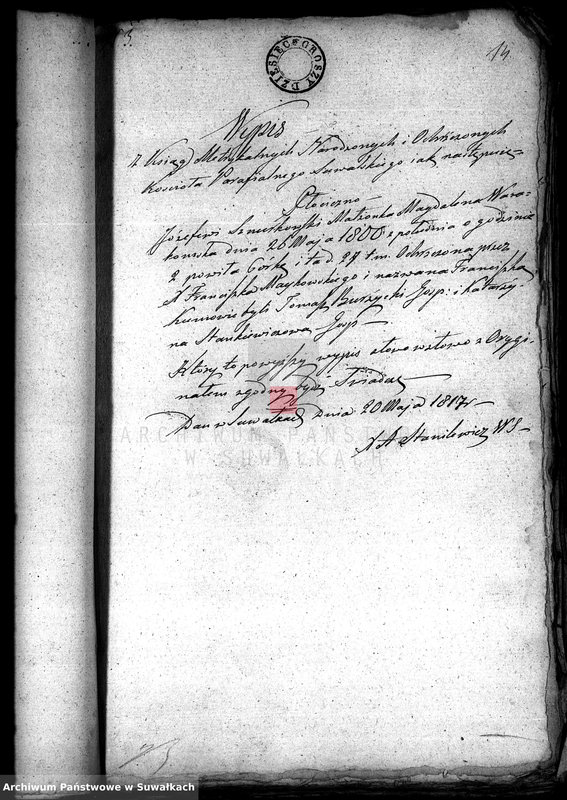 3.
14
DZIESIĘĆ GROSZY
Wypis
z Xsiąg Metrykalnych Narodzonych i Ochrzconych
Kościoła Parafialnego Suwalskiego iak następuie
Płociczno
Józefowi Szmutkowski Małżonka Magdalena Wara-
kowska dnia 26 Maja 1800 z południa o godzinie
2 powiła Córkę i ta d. 27 t. m. Ochrzcona przez
X Franciszka Maykowskiego i nazwana Franciszka
Kumowie byli Tomasz Burzycki Gosp: i Katarzy-
na Stankiewiczowa Gosp
Który to powyższy wypis słowo w słowo z Orygi-
nałem zgodny bydź
Dan w Suwałkach dnia 20 Maja 1817 r
X A Stanilewicz WS
ARCHIWUM PAŃSTWOWE
W SUWAŁKACH
Archiwum Państwowe w Suwałkach